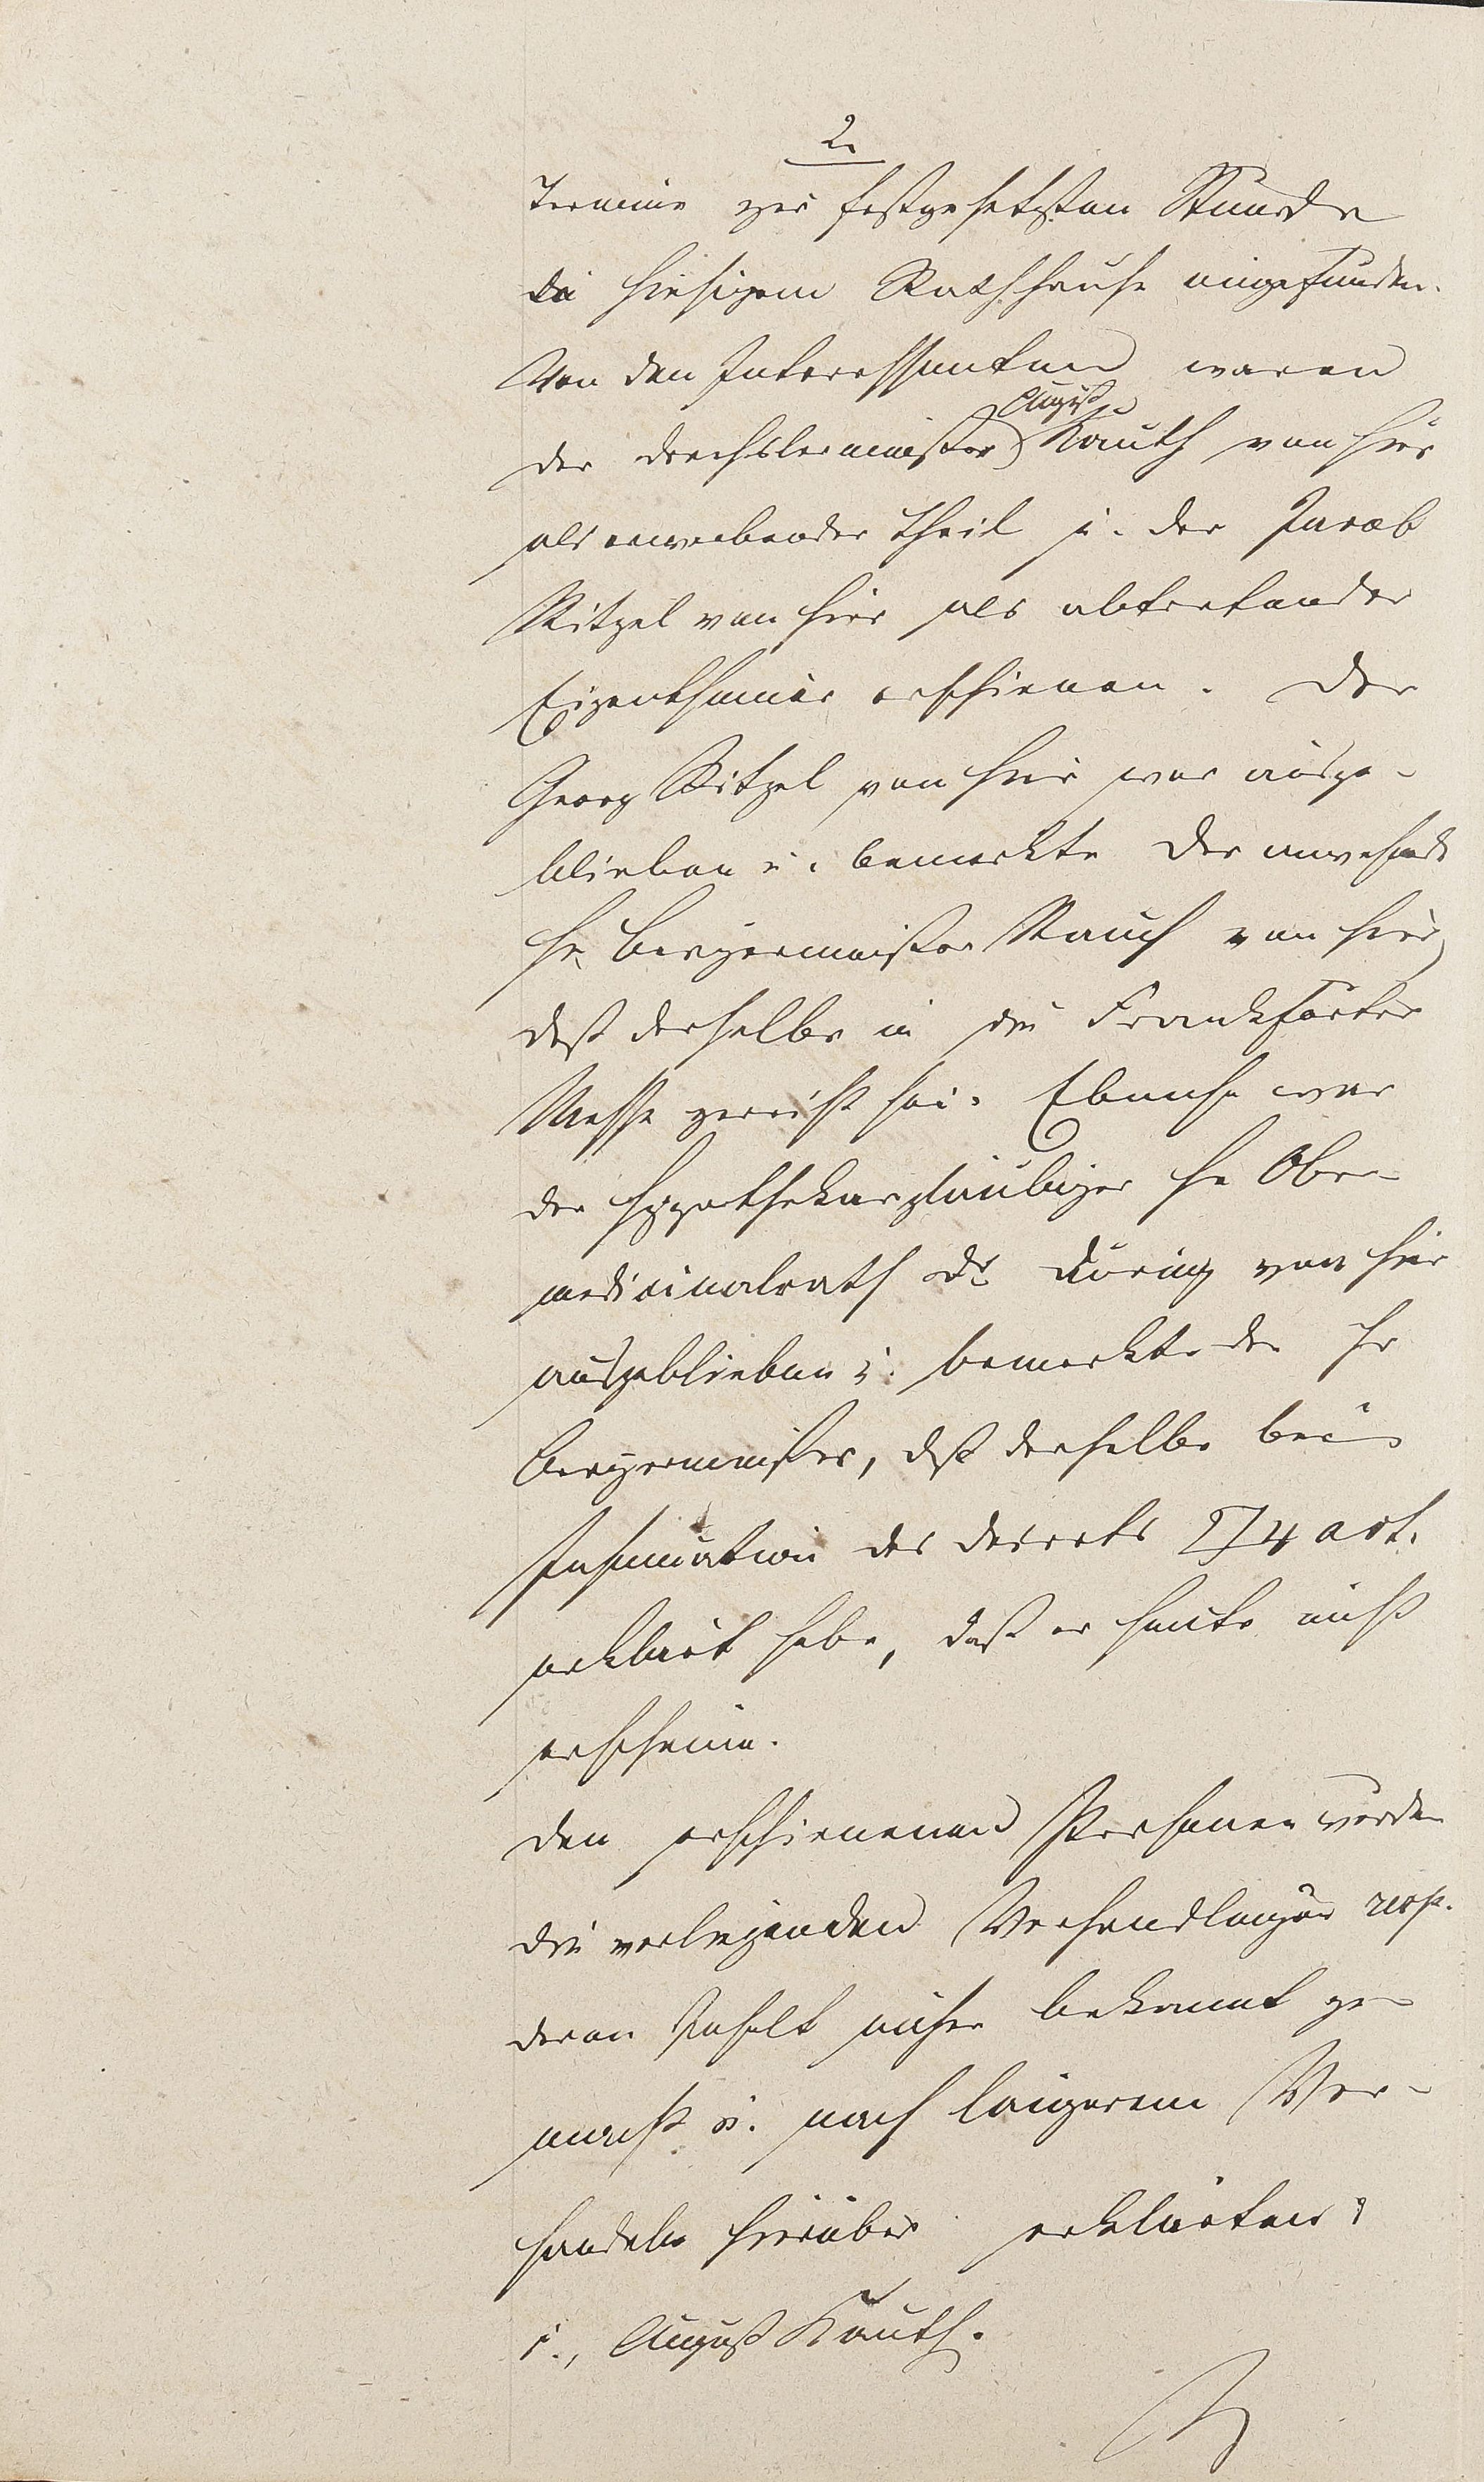 2.
Termine zur festgesetzten Stunde
in hiesigem Rathhause eingefunden.
Von den Interessenten waren
August
der Drechslermeister Kauth von hier
als erwerbender Theil u. der Jacob
Ritzel von hier als abtretender
Eigenthümer erschienen. Der
Georg Ritzel von hier war ausge-
blieben u. bemerkte der anwesende
Hr. Bürgermeister Rauch von hier,
daß derselbe in die Frankfurter
Messe gereist sei. Ebenso war
der Hypothekargläubiger Hr Ober-
medicinalrath Dr. Düring von hier
ausgeblieben u. bemerkte der Hr
Bürgermeister, daß derselbe bei
Insinuation des Decrets 274 act.
erklärt habe, daß er heute nicht
erscheine.
Den erschienenen Personen wurden
die vorliegenden Verhandlungen resp.
deren Inhalt näher bekannt ge-
macht u. nach längerem Ver-
handeln hierüber erklärten:
1., August Kauth.